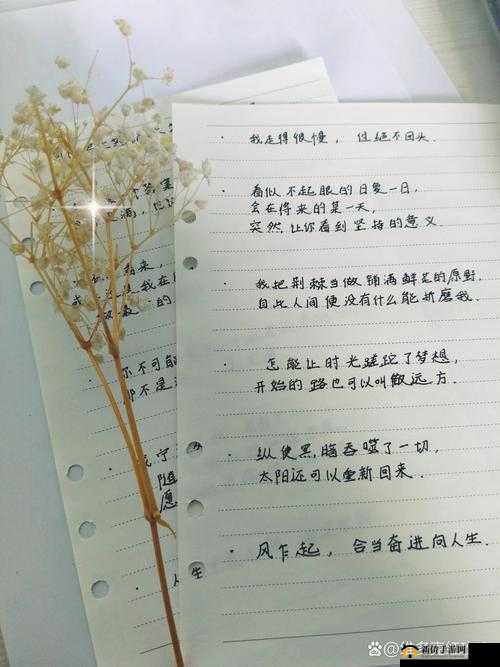 我走得很慢，但绝不回头.
看似不起眼的日复一日，
会在将来的某一天，
突然让你看到坚持的意义.
我把荆棘当做铺满鲜花的原野，
自此人间便没有什么能折磨我.
怎能让时光蹉跎了梦想，
开始的路也可以叫做远方.
纵使黑暗吞噬了一切，
太阳还可以重新回来.
风乍起，合当奋进向人生.
我在
的
你不可能
那不是
宁
随
愿
生